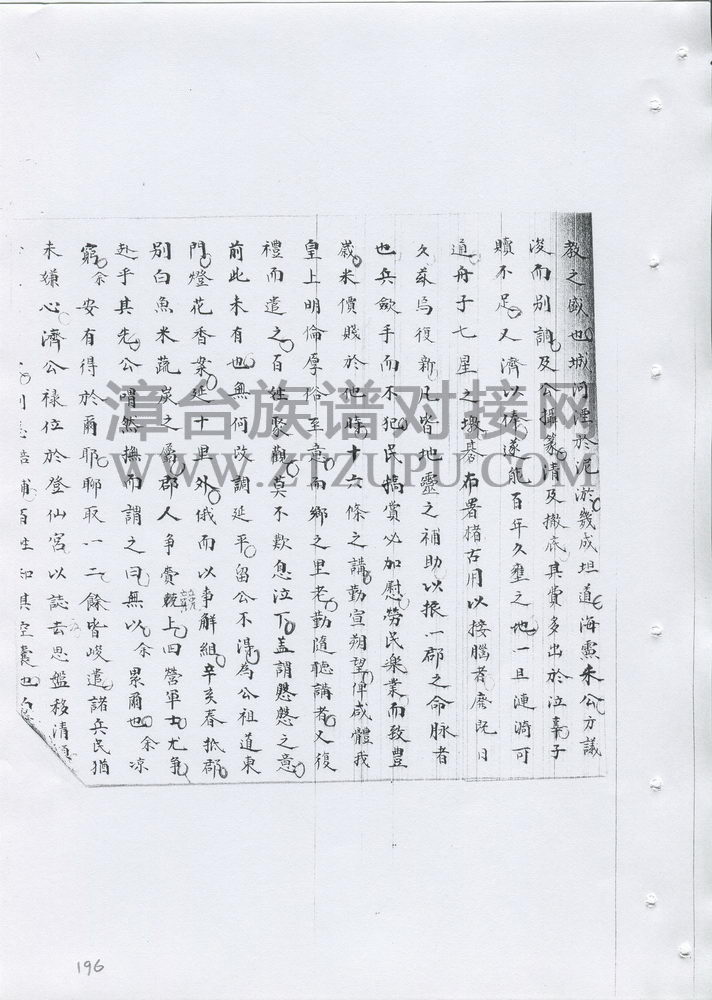 教之盛也城河湮於泥淤幾成坦道海憲朱公方議
浚而別調及公攝篆清及撤底其費多出於泣辜子
贖不足又濟以俸遂能百年久壅之地一旦漣漪可
通舟子七星之墩碁布署楮古用以接腦者廢既日
久茲烏復新凡皆地靈之補助以振一郡之命脉者
也兵斂手而不犯民犒賞必加慰勞民樂業而致豐
歲米價賤於他時十六條之講勤宣朔望俾咸體我
皇上明倫厚俗至意而鄉之里老勤隨聽講者又復
禮而遣之百姓聚觀莫不歎息泣下蓋謂懇懇之意
前此未有也無何改調延平留公不得為公祖道東
門燈花香案延十里外俄而以事解組辛亥春抵郡
別白魚米蔬炭之屬郡人爭費競上四營軍士尤爭
赴乎其先公喟然撫而謂之曰無以余累爾也余凉
窮余安有得於爾耶聊取一二餘皆峻遣諸兵民猶
未嫌心濟公祿位於登仙宮以誌去思盤移清
百姓知其空囊也
漳台族谱对接网
WWW.ZTZUPU.COM
196